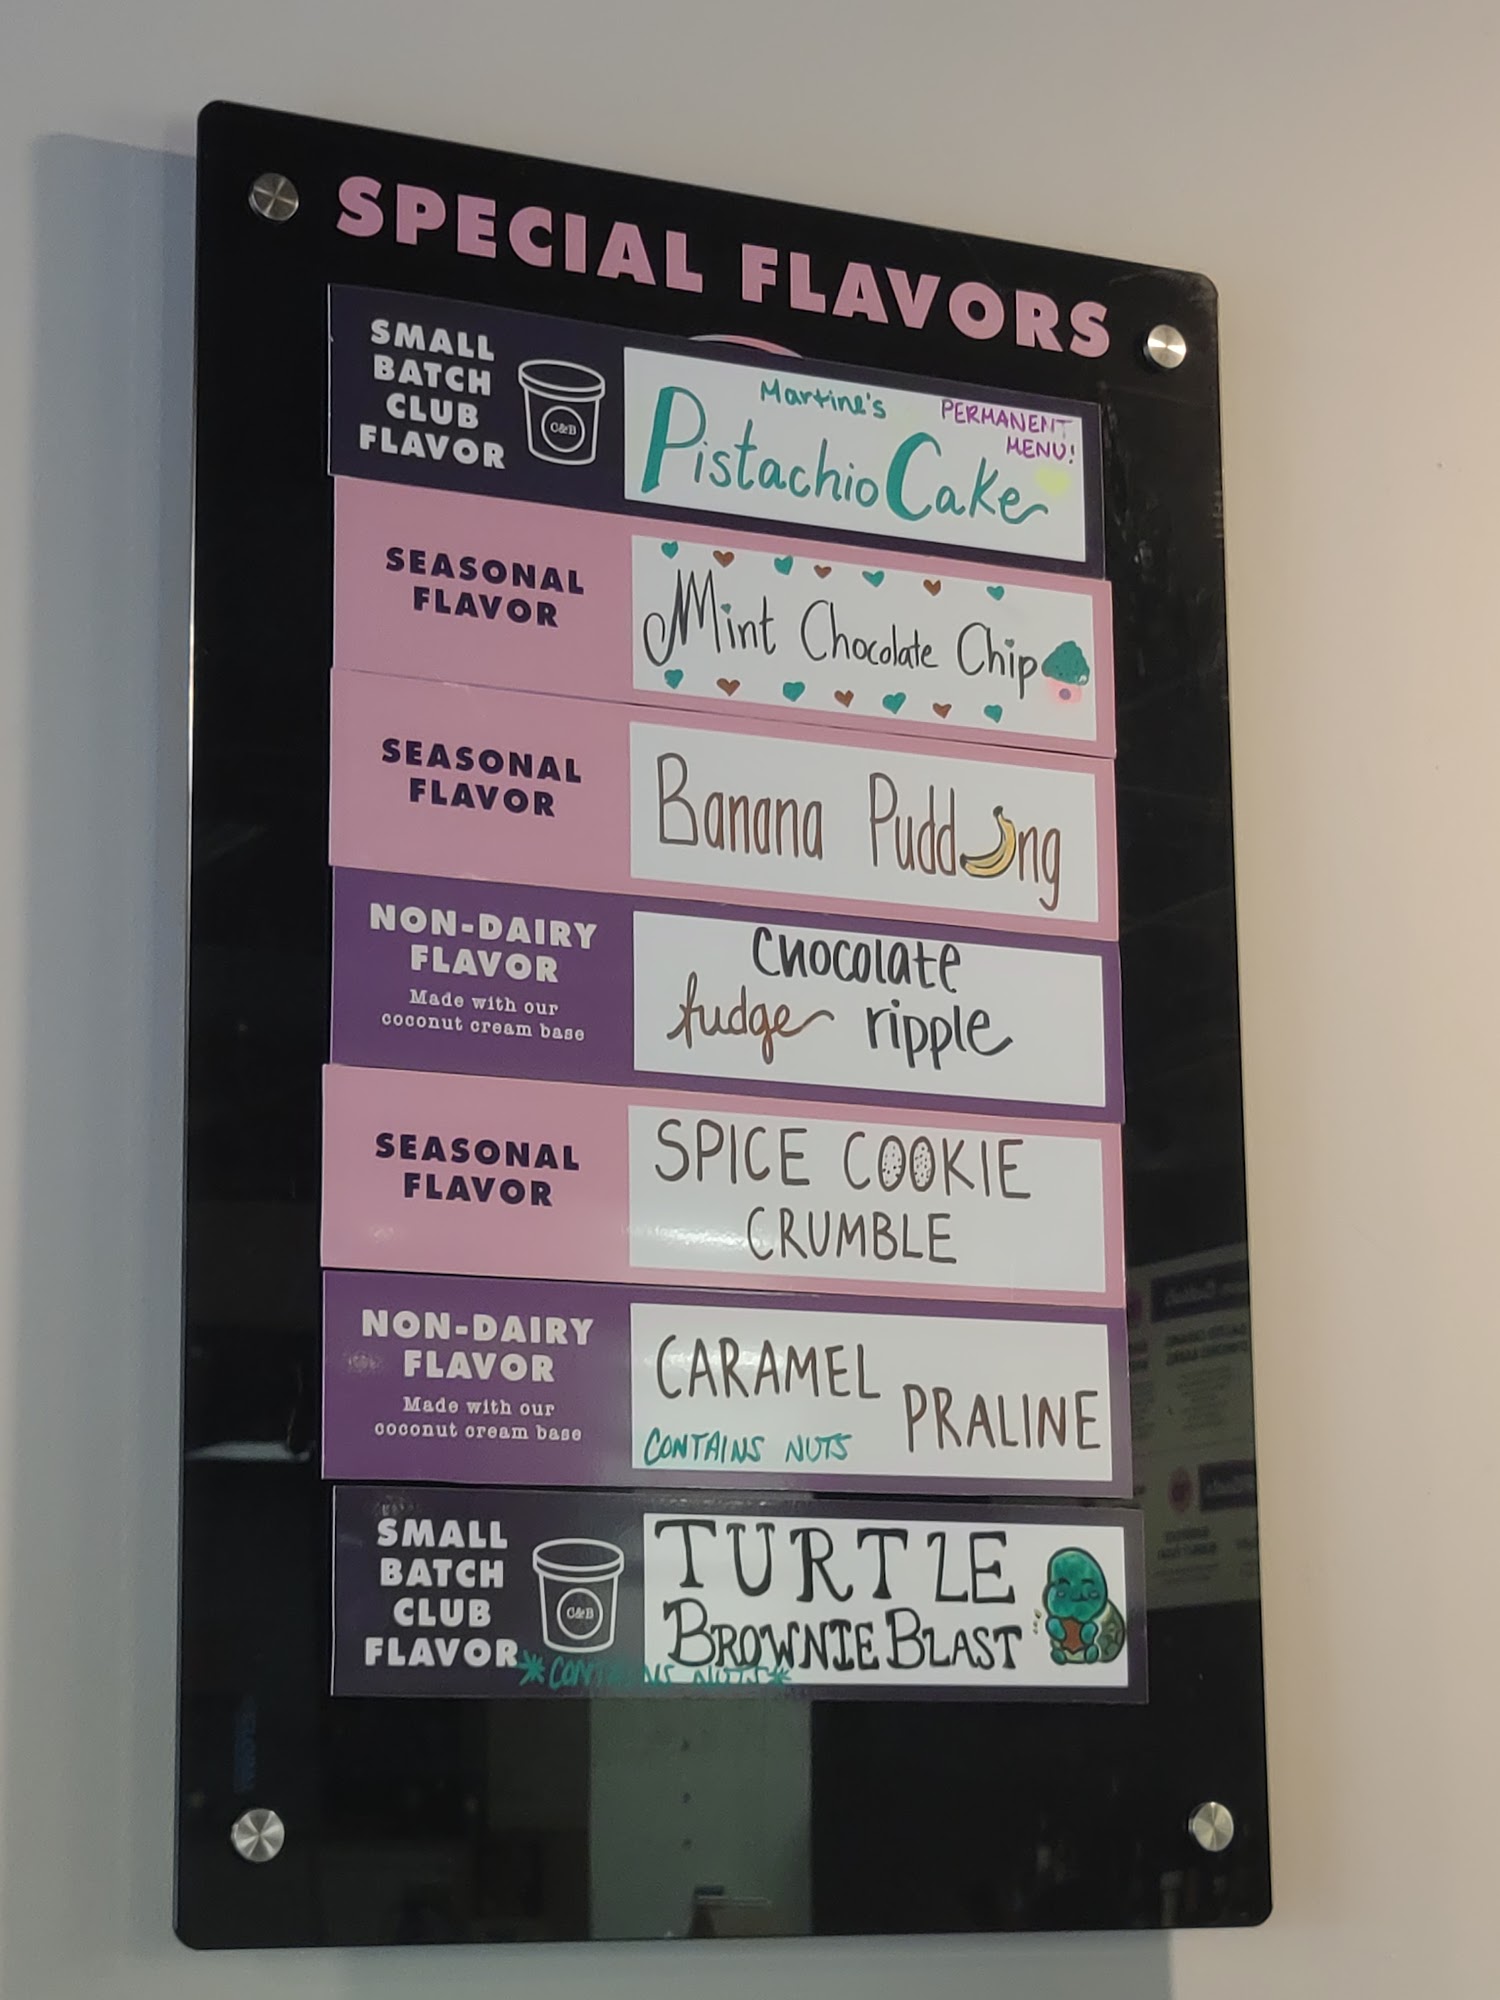 SPECIAL FLAVORS
SMALL
BATCH
CLUB
FLAVOR
C&B
Martine's
PERMANENT
MENU!
Pistachio Cake
SEASONAL
FLAVOR
Mint Chocolate Chip
SEASONAL
FLAVOR
Banana Pudding
NON-DAIRY
FLAVOR
Made with our
coconut cream base
Chocolate
fudge ripple
SEASONAL
FLAVOR
SPICE COOKIE
CRUMBLE
NON-DAIRY
FLAVOR
Made with our
coconut cream base
CARAMEL
PRALINE
CONTAINS NUTS
SMALL
BATCH
CLUB
FLAVOR
C&B
TURTLE
BROWNIE BLAST
*CONTAINS NUTS*